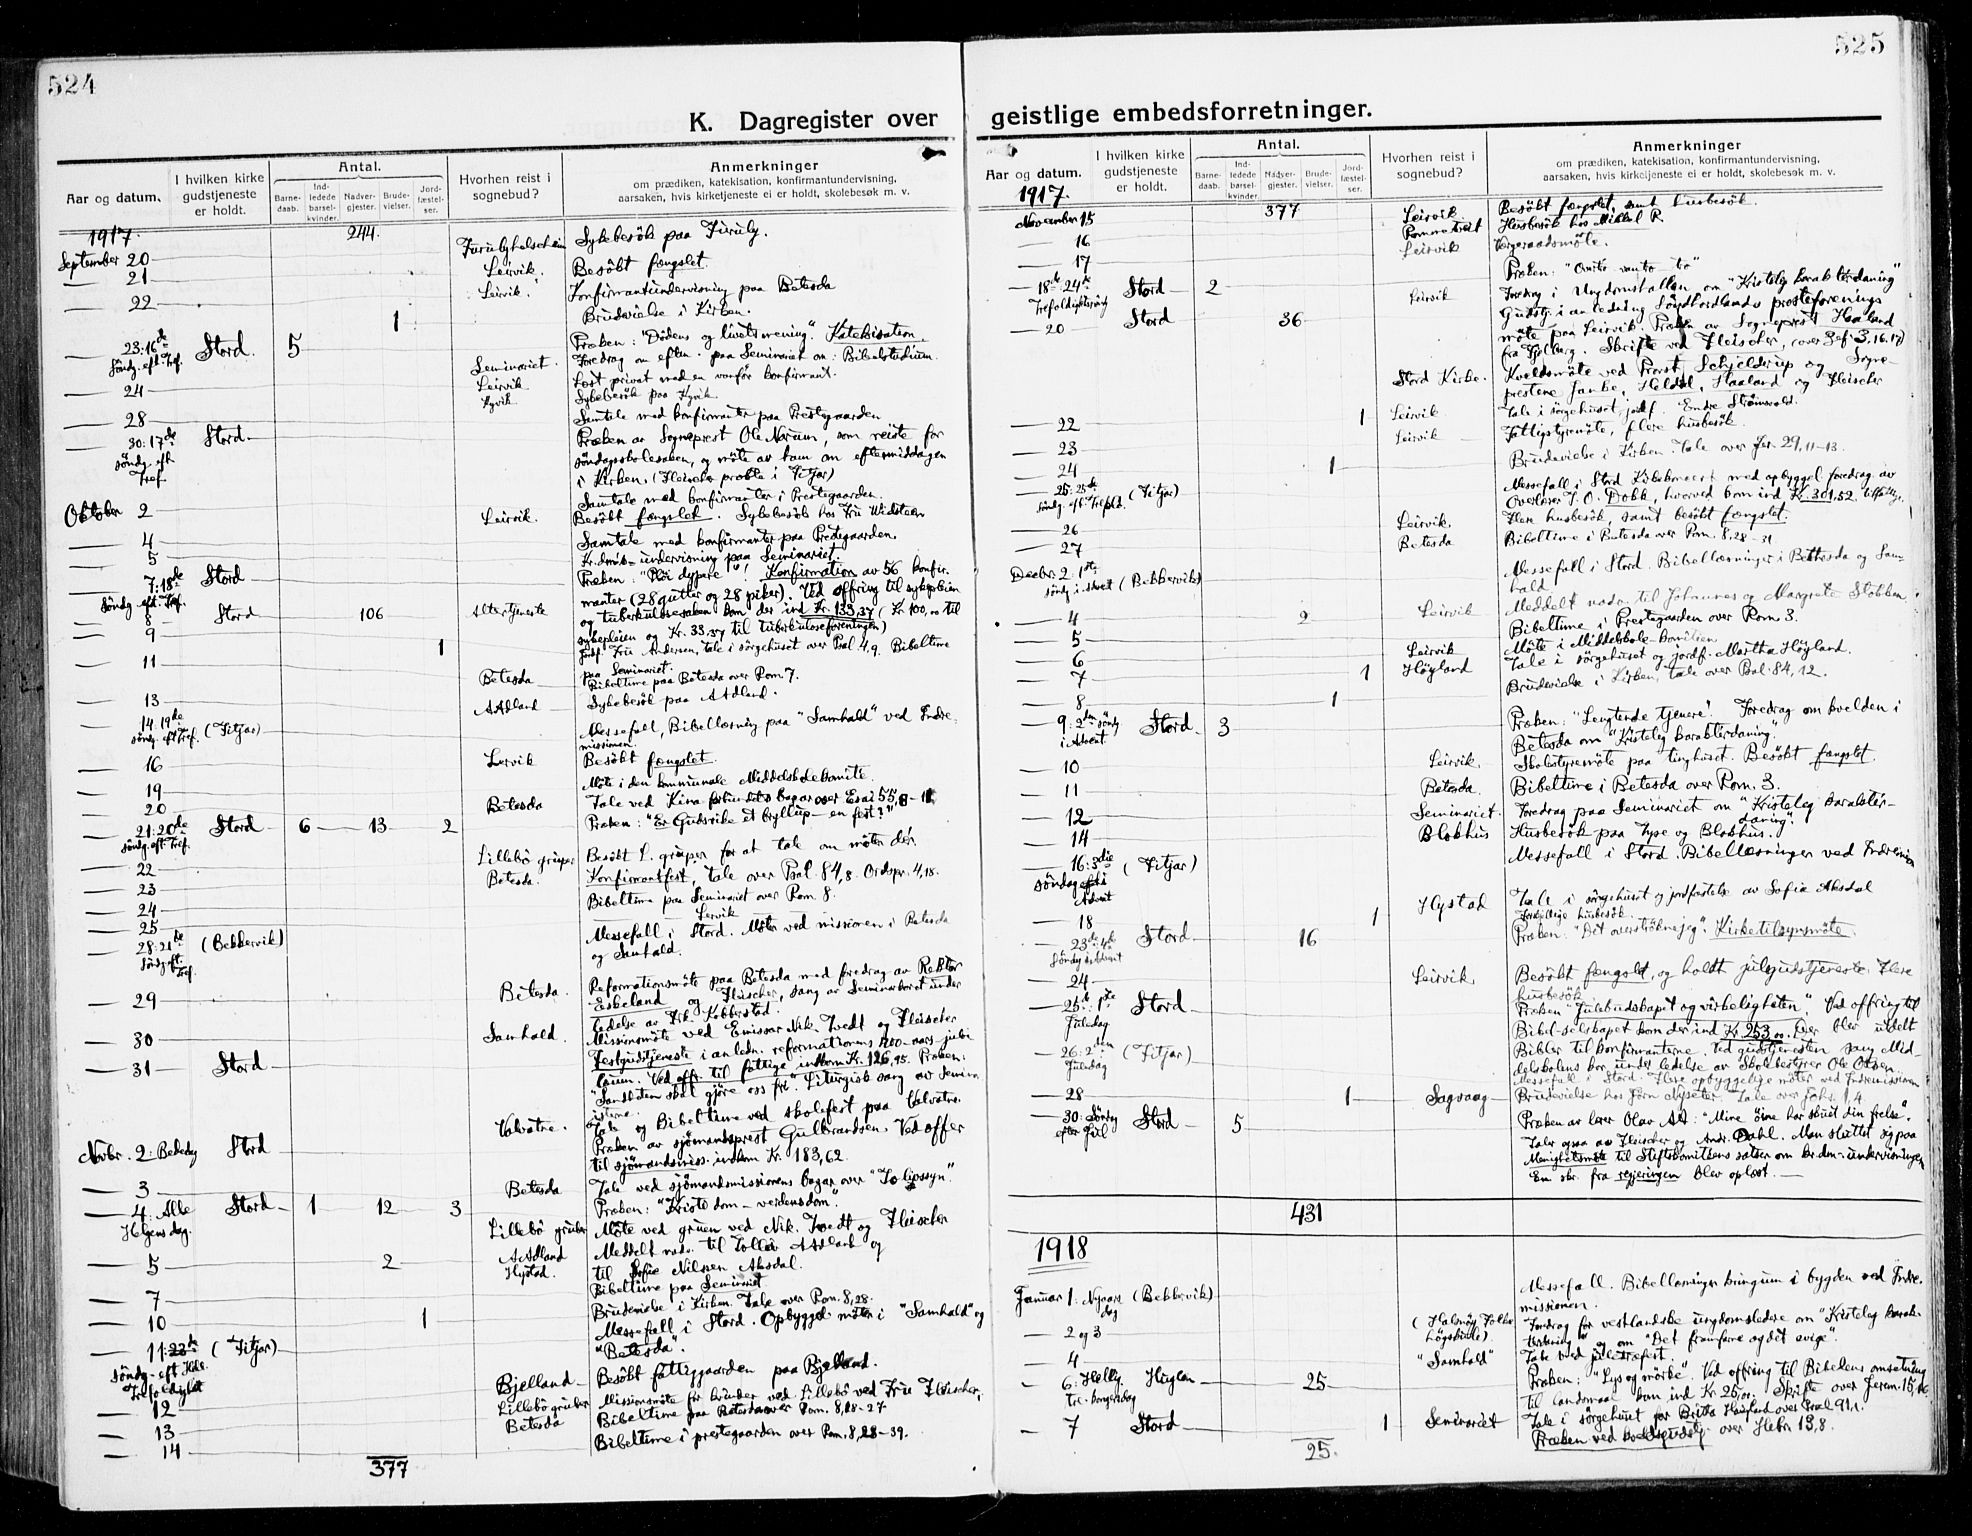 524
K. Dagregister over
Aar og datum.
I hvilken kirke gudstjeneste er holdt.
Antal.
Barne-daab.
Ind-ledede barsel-kvinder.
Nadver-gjester.
Brude-vielser.
Jord-fæstel-ser.
Hvorhen reist i sognebud?
Anmerkninger
om prædiken, katekisation, konfirmantundervisning,
aarsaken, hvis kirketjeneste ei er holdt, skolebesøk m. v.
1917. 244.
September 20 Sykebesök paa Furuly.
21 Leirvik. Besökt fængslet.
22 Leirvik. Konfirmantundervisning paa Betesda
1 Brudevielse i Kirken.
23: 16de Stord. 5 Præken: "Dödens og livets mening". Katekisation.
Söndg. eft. Tref. Seminariet. Foredrag om eftm. paa Seminariet om: Bibelstudium.
24 Leirvik Læst privat med en vanför konfirmant.
Sykebesök paa
28 Samtale med konfirmanter paa Prestegaarden
30: 17de Stord Præken av Sogneprest Ole Nærum, som reiste for
söndg. eft. Tref. söndagsskolesaken, og möte av ham om eftermiddagen
i Kirken. (Fleischer præke i Fitjar)
Samtale med konfirmanter i Prestegaarden.
Oktober 2 Leirvik. Besökt fængslet. Sykebesök hos Fru Widsteen
4 Samtale med konfirmanter paa Prestegaarden.
5 Kr.doms-undervisning paa Seminariet.
7: 18de Stord Præken: "Plöi dypere"! Konfirmation av 56 konfir-
söndg. eft. Tref. manter (28 gutter og 28 piker). Ved offring til sykepleien
8 Stord 106 Altertjeneste og tuberkulosesaken kom der ind Kr. 133,37 (Kr 100,00 til
9 sykepleien og Kr. 33,37 til tuberkuloseforeningen)
1 Jordf. Fru Andersen, tale i sörgehuset over Psal. 4,9. Bibeltime
11 paa Seminariet.
Betesda Bibeltime paa Betesda over Rom 7.
13 Adland Sykebesök paa Adland.
14: 19de söndg. eft Tref. (Fitjar) Messefall, Bibellæsning paa "Samhald" ved Indre-
missionen.
16 Leirvik Besökt fængslet.
19 Möte i den kommunale Middelskolekomite.
20 Betesda Tale ved Kinaforbundets bazar over Esai 55,8-11
21: 20de Stord 6 13 2 Præken: "Er Guds rike et bryllup - en fest?"
söndg. eft. Tref. Lillebö gruper Besökt L. gruper for at tale om möter der.
22 Betesda. Konfirmantfest, tale over Psal. 84,8. Ordspr. 4,18.
23 Bibeltime paa Seminariet over Rom 8.
24 Leirvik
25
28: 21de (Bekkervik) Messefall i Stord. Möter ved missionen i Betesda
söndg. eft. Tref. og Samhald.
29 Betesda. Reformationsmöte paa Betesda med foredrag av Rektor
Eskeland og Fleischer, sang av Seminarkoret under
ledelse av Frk. Kobberstad.
30 Samhald. Missionsmöte ved Emissær Nik. Tvedt og Fleischer
31 Stord Festgudstjeneste i anledn. reformationens 400-aars-jubi-
læum. Ved offr. til fattige indkom Kr. 126,95. Præken:
"Sandheten skal gjöre oss fri." Liturgisk sang av Semina-
risterne.
Valvatne. Tale og Bibeltime ved skolefest paa Valvatne.
Novbr. 2: Bededag Stord Præken av sjömandsprest Gulbrandsen. Ved offer
til sjömandsmiss. indkom Kr. 183,62.
3 Betesda Tale ved sjömandsmissionens bazar over
4: Alle Stord 1 12 3 Præken: "Kristendom - verdensdom".
Helgens dag. Lillebö gruber Möte ved gruen ved Nik. Tvedt og Fleischer
5 2 Adland Meddelt nadv. til Tolleiv Adland og
Hystad. til Sofie Nilssen Aksdal.
7 Bibeltime paa Seminariet
10 1 Brudevielse i Kirken. Tale over Rom. 8,28.
11: 23de (Fitjar) Messefall i Stord. Opbyggel. möter i "Samhald" og
söndg. eft. Trefoldighet "Betesda".
12 Bjelland Besökt fattiggaarden paa Bjelland.
13 Lillebö gruber Missionsmöte for kvinder ved Lillebö ved Fru Fleischer.
Betesda Bibeltime paa Betesda over Rom. 8,18-27
14 Bibeltime i prestegaarden over Rom. 8,28-39.
377
525
geistlige embedsforretninger.
Aar og datum.
I hvilken kirke gudstjeneste er holdt.
Antal.
Barne-daab.
Ind-ledede barsel-kvinder.
Nadver-gjester.
Brude-vielser.
Jord-fæstel-ser.
Hvorhen reist i sognebud?
Anmerkninger
om prædiken, katekisation, konfirmantundervisning,
aarsaken, hvis kirketjeneste ei er holdt, skolebesøk m. v.
1917.
November 15 377 Leirvik. Besökt fængslet, samt husbesök.
16 Husbesök hos Mikkel R.
17 Leirvik Vergeraadsmöte.
18de: 24de Stord 2 Præken:
Trefoldighetssöndg Leirvik Foredrag i Ungdomshallen om "Kristelig karakterdaning"
20 Stord 36 Gudstj. i anledning Söndhordlands presteforenings
möte paa Leirvik. Præken av Sogneprest Haaland
fra Fjelberg. Skrifte ved Fleischer, (over Zef. 3,16.17)
Stord Kirke. Kveldsmöte ved Provst Schjelderup og Sogne-
presterne Janke, Heldal, Haaland og Fleischer
22 1 Leirvik Tale i sörgehuset, jordf. Endre Strömsvold.
23 Leirvik Fattigstyremöte, flere husbesök.
24 1 Brudevielse i Kirken. Tale over Jer. 29,11-13.
25: 25de söndg. eft. Trefold. (Fitjar) Messefall i Stord med opbyggel. foredrag av
Overlærer J. O. Dobk, hvorved kom ind Kr. 301,52.
26 Leirvik. Flere husbesök, samt besökt fængslet.
27 Betesda Bibeltime i Betesda over Rom. 8,28-31
Decbr. 2: 1ste söndg i advent (Bekkervik) Messefall i Stord. Bibellæsninger i Betesda og Sam-
hald.
4 2 Leirvik Meddelt nadv. til Johannes og Margrete Stokken
5 Bibeltime i Prestegaarden over Rom 3.
6 Leirvik Möte i Middelskole-komiteen
7 1 Höyland Tale i sörgehuset og jordf. Martha Höyland.
8 1 Brudevielse i Kirken, tale over Psal. 84,12.
9: 2den söndg. i Advent. Stord. 3 Præken: "Lengtende tjenere". Foredrag om kvelden i
Betesda om "Kristelig karakterdaning".
10 Leirvik. Skolestyremöte paa tinghuset. Besökt fængslet.
11 Betesda. Bibeltime i Betesda over Rom. 3.
12 Seminariet. Foredrag paa Seminariet om "Kristelig karakter-
daning".
14 Blokhus Husbesök paa Tyse og Blokhus.
16: 3die söndag i Advent (Fitjar) Messefall i Stord. Bibellæsninger ved Indremission
18 1 Hystad Tale i sörgehuset og jordfæstelse av Sofie Aksdal
Forskjellige husbesök.
23de: 4de Söndag i Advent Stord 16 Præken: Kirketilsynsmöte.
24 Leirvik. Besökt fængslet, og holdt julegudstjeneste. Flere
husbesök
25de: 1ste Juledag Stord Præken "Julebudskapet og virkeligheten". Ved offring til
Bibel-selskapet kom der ind Kr. 253,00. Der blev utdelt
26: 2den Juledag (Fitjar) Bibler til konfirmanterne. Ved gudstjenesten sang Mid-
delskolens kor under ledelse av Skolebestyrer Ole Olsen.
Messefall i Stord. Flere opbyggelige möter ved Indremissionen
28 1 Sagvaag Brudevielse hos Jörn Nysæter. Tale over Joh. 1,4.
30: Söndag efter Jul Stord 5 Præken av lærer Olav Aa: "Mine öine har skuet din frelse".
Taler ogsaa av Fleischer og Andr. Dahl. Man sluttet sig paa
Menighetsmöte til Stiftskomiteens satser om kr.dm.-undervisningen
En skr. fra regjeringen blev oplæst.
431
1918
Januar 1: Nyaarsdag (Bekkervik) Messefall. Bibellæsninger kringum i bygden ved Indre-
missionen.
2 og 3 (Halsnöy Folkehögskule) Foredrag for vestlandske ungdomsledere om "Kristelig karak-
og om "Det framfarne og det evige".
4 "Samhald" Tale ved juletræfest
6: Hellig Tre-kongersdag Huglen 25 Præken: "Lys og mörke". Ved offring til Bibelens omsetning
til landsmaal kom ind Kr 25,00. Skrifte over Jerem. 15,16.
7 Stord 1 Seminariet Tale i sörgehuset for Britta Haugland over Psal 91,1.
Præken ved kveldsgudstj. over Hebr. 13,8.
25.